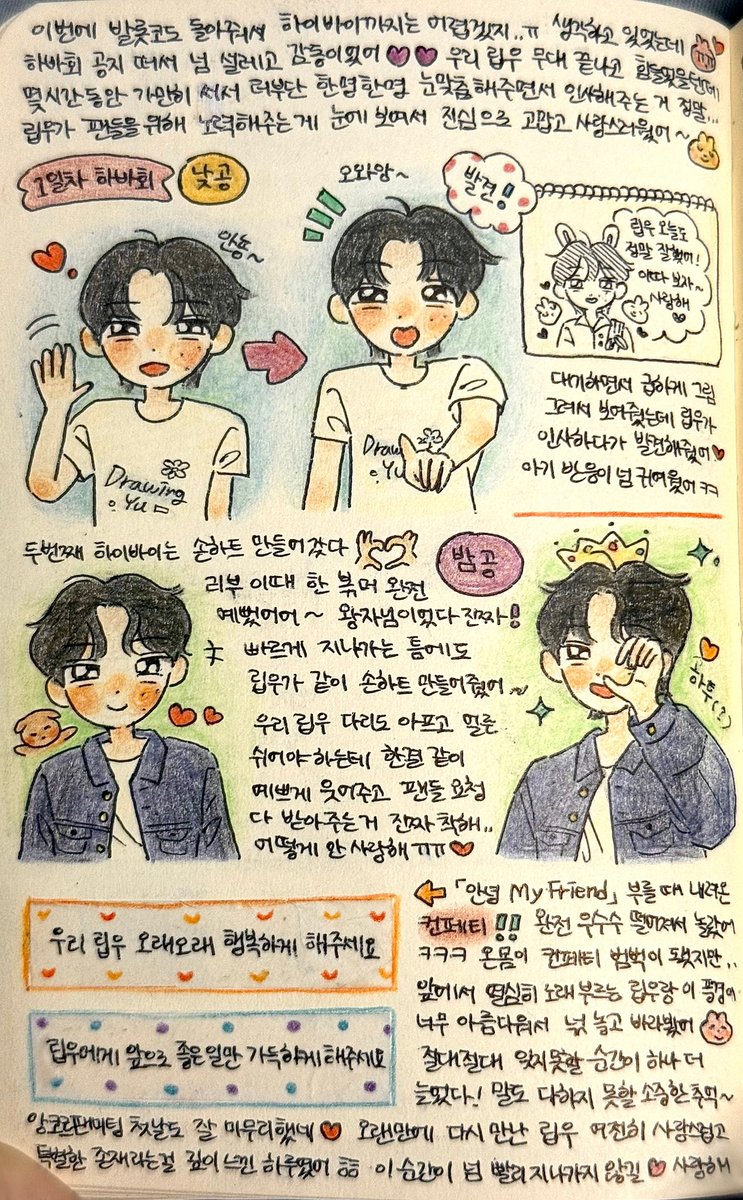 이번에 발롯코도 돌아줘서 하이바이까지는 어렵겠지..ㅠ 생각하고 있었는데 ㅠㅠ
하바회 공지 떠서 넘 설레고 감동이었어 우리 립우 무대 끝나고 힘들었을텐데
몇시간동안 가만히 서서 러부단 한명한명 눈맞춤해주면서 인사해주는 거 정말...
립우가 팬들을 위해 노력해주는게 눈에 보여서 진심으로 고맙고 사랑스러웠어~
1일차 하바회
낮공
안뇽~
오와앙~
발견!
립우 오늘도
정말 잘했어!
이따 보자~
사랑해
Drawing
Yu
Draw
Yu
대기하면서 급하게 그림
그려서 보여줬는데 립우가
인사하다가 발견해줬어
아기 반응이 넘 귀여웠어 ㅋㅋ
두번째 하이바이는 손하트 만들어갔다
밤공
러부 이때 한
예뻤어어~ 왕자님이었다 진짜!
빠르게 지나가는 틈에도
립우가 같이 손하트 만들어줬어~
하투(?)
우리 립우 다리도 아프고 얼른
쉬어야 하는데 한결 같이
예쁘게 웃어주고 팬들 요청
다 받아주는거 진짜 착해..
어떻게 안 사랑해 ㅠㅠ
우리 립우 오래오래 행복하게 해주세요
립우에게 앞으로 좋은일만 가득하게 해주세요
「안녕 My Friend」 부를때 내려온
컨페티!! 완전 우수수 떨어져서 놀랐어
ㅋㅋㅋ 온몸이 컨페티 범벅이 됐지만..
앞에서 열심히 노래 부르는 립우랑 이 풍경이
너무 아름다워서 넋 놓고 바라봤어
절대절대 잊지못할 순간이 하나 더
늘었다! 말로 다하지 못할 소중한 추억~
앙코르팬미팅 첫날도 잘 마무리했네 오랜만에 다시 만난 립우 여전히 사랑스럽고
특별한 존재라는걸 깊이 느낀 하루였어 이 순간이 넘 빨리 지나가지 않길 사랑해